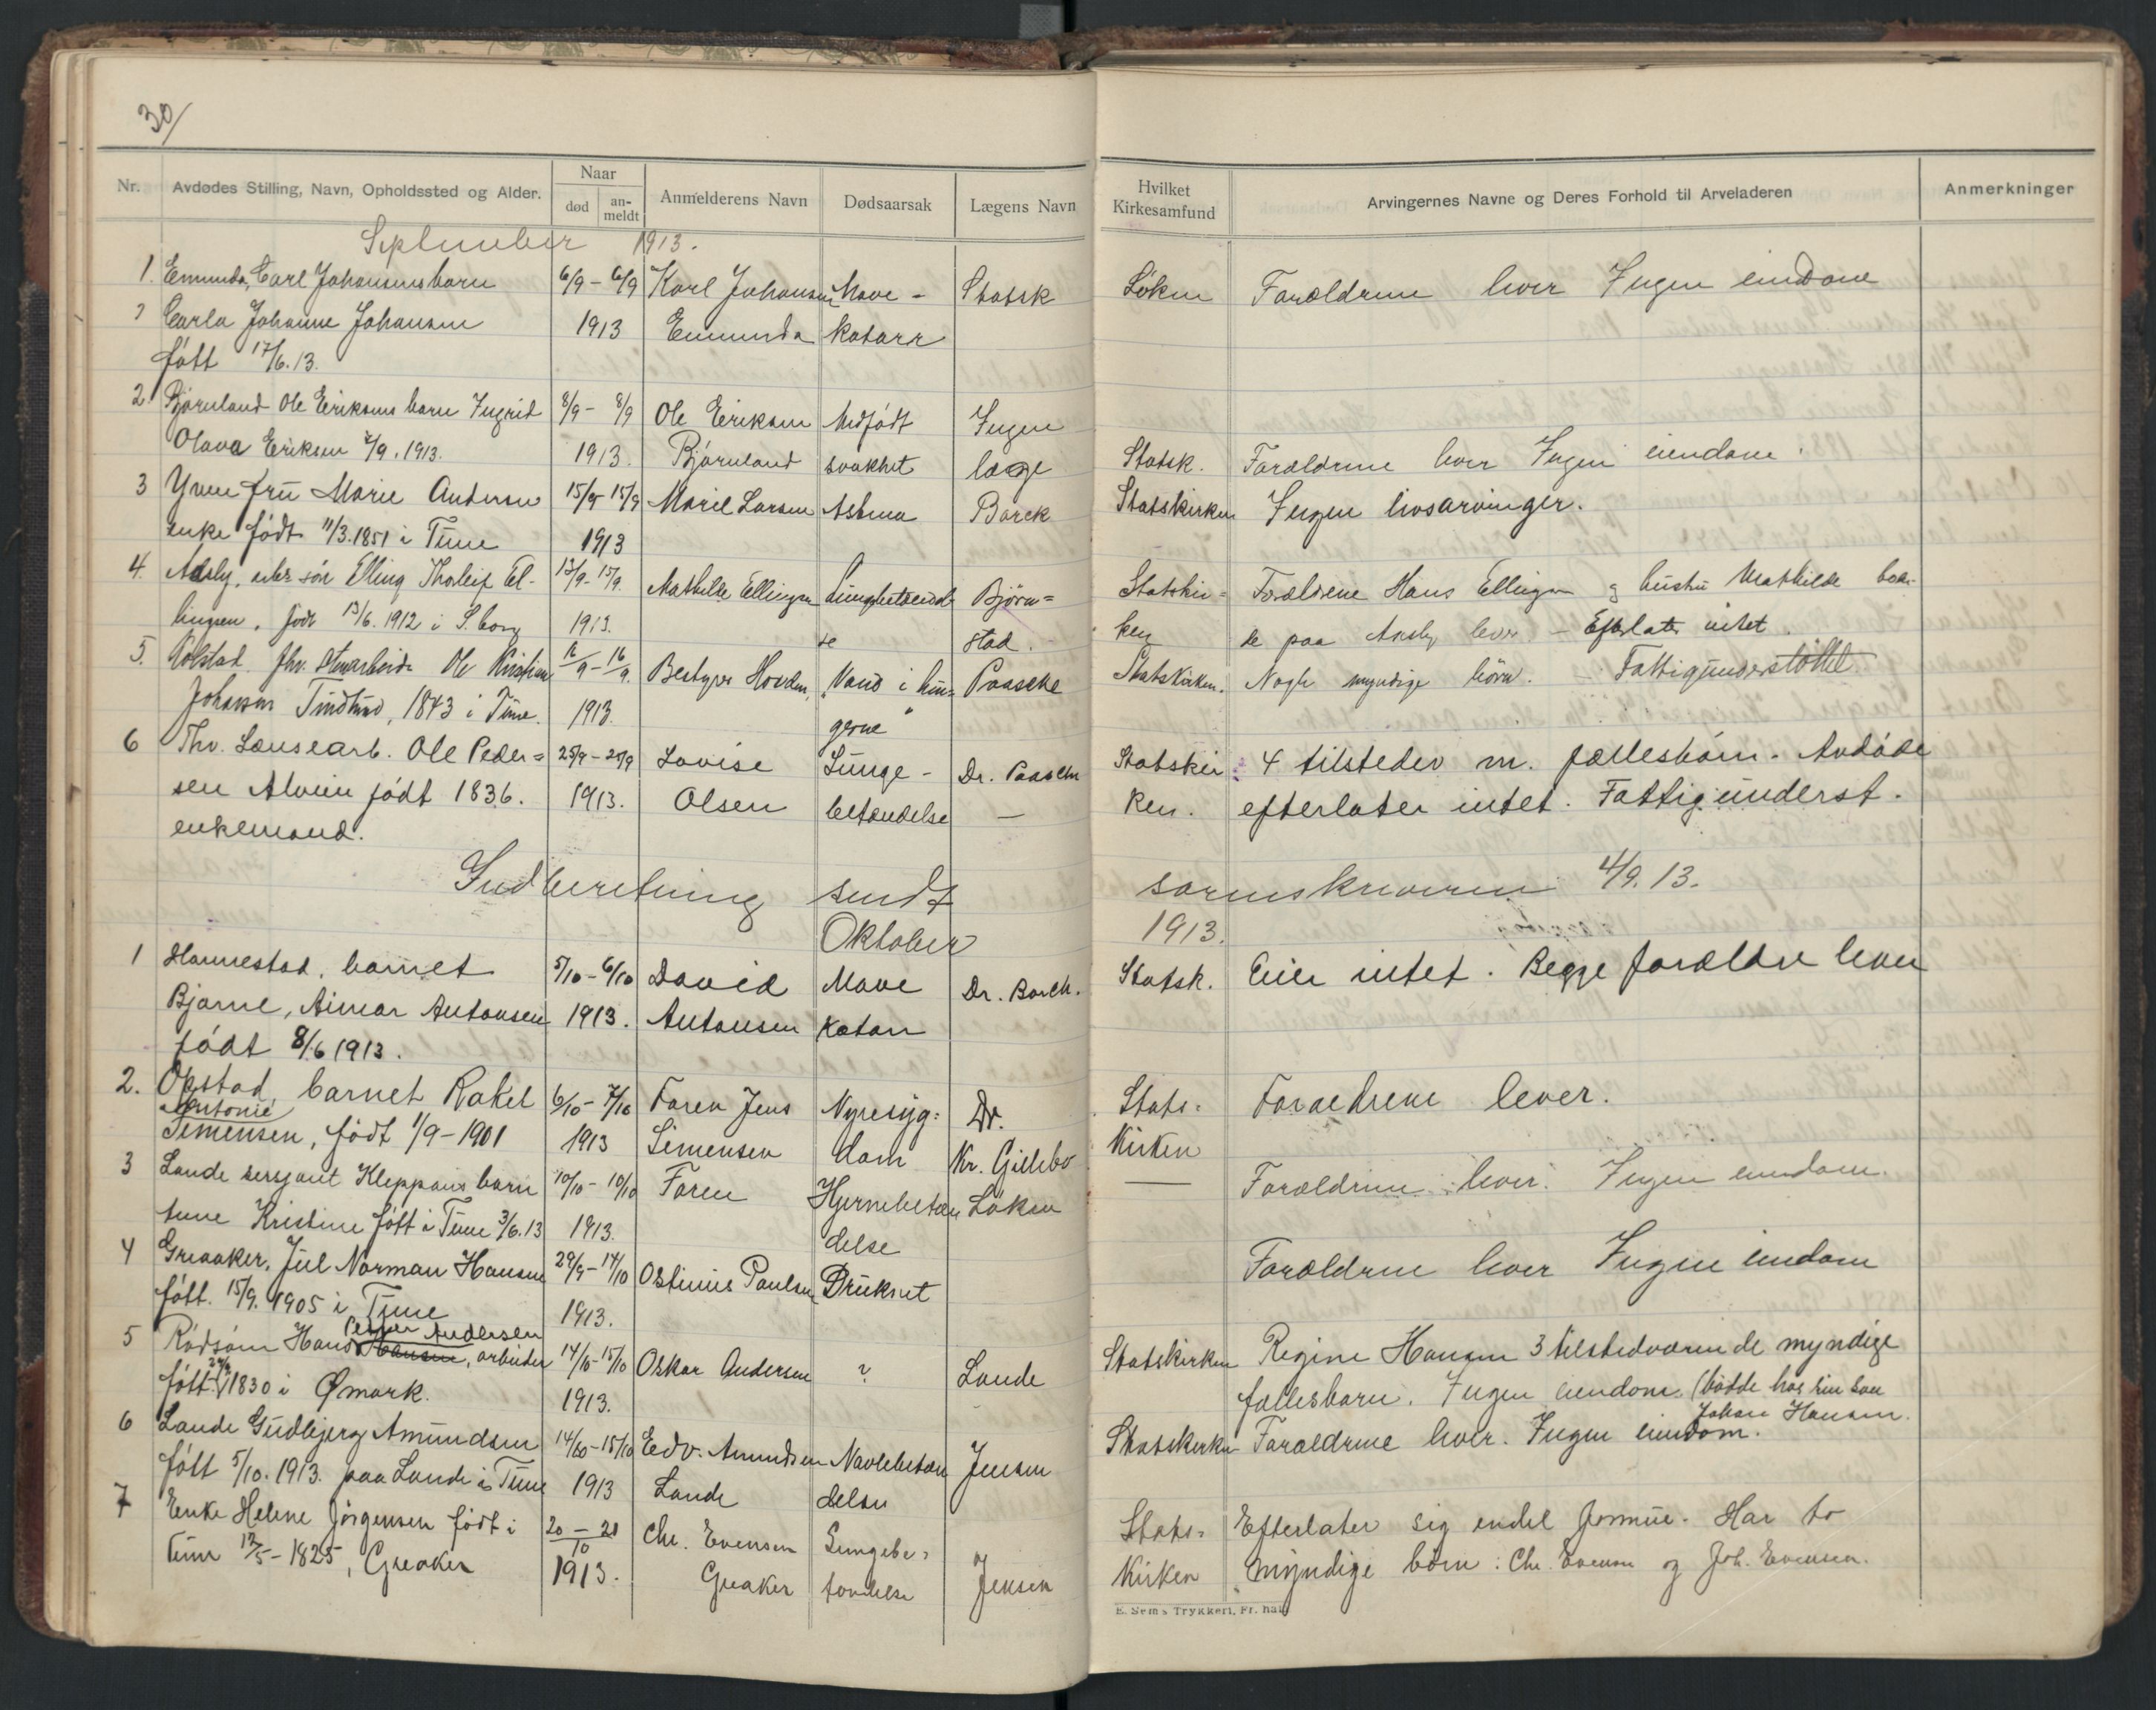 30/
Nr.
Avdødes Stilling, Navn, Opholdssted og Alder.
Naar
død
an-
meldt
Anmelderens Navn
Dødsaarsak
Lægens Navn
Hvilket
Kirkesamfund
Arvingernes Navne og Deres Forhold til Arveladeren
Anmerkninger
September 1913.
1. Emmunda, Carl Johansens barn 6/9 - 6/9 Karl Johansen Mave - Statsk Løken Forældrene lever Ingen eiendom
Carla Johanne Johansen 1913 Emmunda katarr
født 17/6.13.
2 Bjørnland Ole Eriksens barn Ingrid 8/9 - 8/9 Ole Eriksen Medfødt Ingen
Olava Eriksen 7/9.1913. 1913. Bjørnland svakhet læge Statsk. Forældrene lever Ingen eiendom.
3 Yven fru Marie Andersen 15/9 15/9 Marie Larsen Astma Borck Statskirken Ingen livsarvinger.
enke født 11/3.1851 i Tune 1913
4. søn Elling Tholeif El- 13/9 - 15/9. Mathilde Ellingsen Lungebetændel Bjørn= Statskir= Forældrene Hans Ellingsen og hustru Mathilde boen-
lingsen, født 13/6. 1912 i S.borg 1913. se stad. ken de paa lever. - Efterlater intet
5. Ole Kristian 16/9 - 16/9. Bestyrer Hovden, "Vand i lun= Paasche Statskirken. Nogle myndige børn. - Fattigunderstøttet
Johansen Tindlund, 1843 i Tune. 1913. gerne"
6 Fhv. Lensearb. Ole Peder= 25/9 - 25/9 Lovise Lunge - Dr. Paasche Statskir 4 tilstedev m. fællesbørn. Avdøde
sen Alvim født 1836. 1913. Olsen betændelse — ken. efterlater intet. Fattigunderst.
enkemand.
Indberetning sendt sorenskriveren 4/9. 13.
Oktober 1913.
1 Hannestad, barnet 5/10 - 6/10 David Mave Dr. Borch. Statsk. Eier intet. Begge forældre lever
Bjarne, Aimar Antonsen 1913. Antonsen Katarr
født 8/6 1913.
2. Opstad, barnet Rakel 6/10 - 7/10 Faren Jens Nyresyg= Dr. Stats= Foraeldrene lever.
Antonie
Simensen, født 1/9 - 1901 1913 Simensen dom Kr. Gillebo Kirken
3 Lande sersjant Kleppans barn 10/10 - 10/10 Faren Hjernebetæn Løken — Forældrene lever. Ingen eiendom.
Kristine født i Tune 3/6.13 1913. delse
4 Greaaker, Jul Norman Hansen 29/9 - 14/10 Ostinius Paulsen Druknet Forældrene lever Ingen eiendom
født. 15/9. 1905 i Tune 1913.
Peder Andersen
5 Rødsøm Hans Hansen, arbeider 14/10 - 15/10 Oskar Andersen ? Lande Statskirken Regine Hansen 3 tilstedværende myndige
født 1830 i Ømark. 1913. fællesbarn. Ingen eiendom. (bodde hos sin søn
Johan Hansen.
6 Lande Gudbjerg Amundsen 14/10 - 15/10 Edv. Amundsen Navlebetæn Jensen Statskirken Forældrene lever. Ingen eiendom.
født 5/10. 1913. paa Lande i Tune 1913 Lande delse
7 Enke Helene Jørgensen født i 20 - 21 Chr. Evensen Lungebe= Stats= Efterlater sig endel formue. Har to
Tune 12/5 - 1825, Greaker 10 1913. Greaker tændelse Jensen Kirken myndige børn: Chr. Evensen og Joh. Evensen.
E. Sem's Trykkeri, Fr. hald